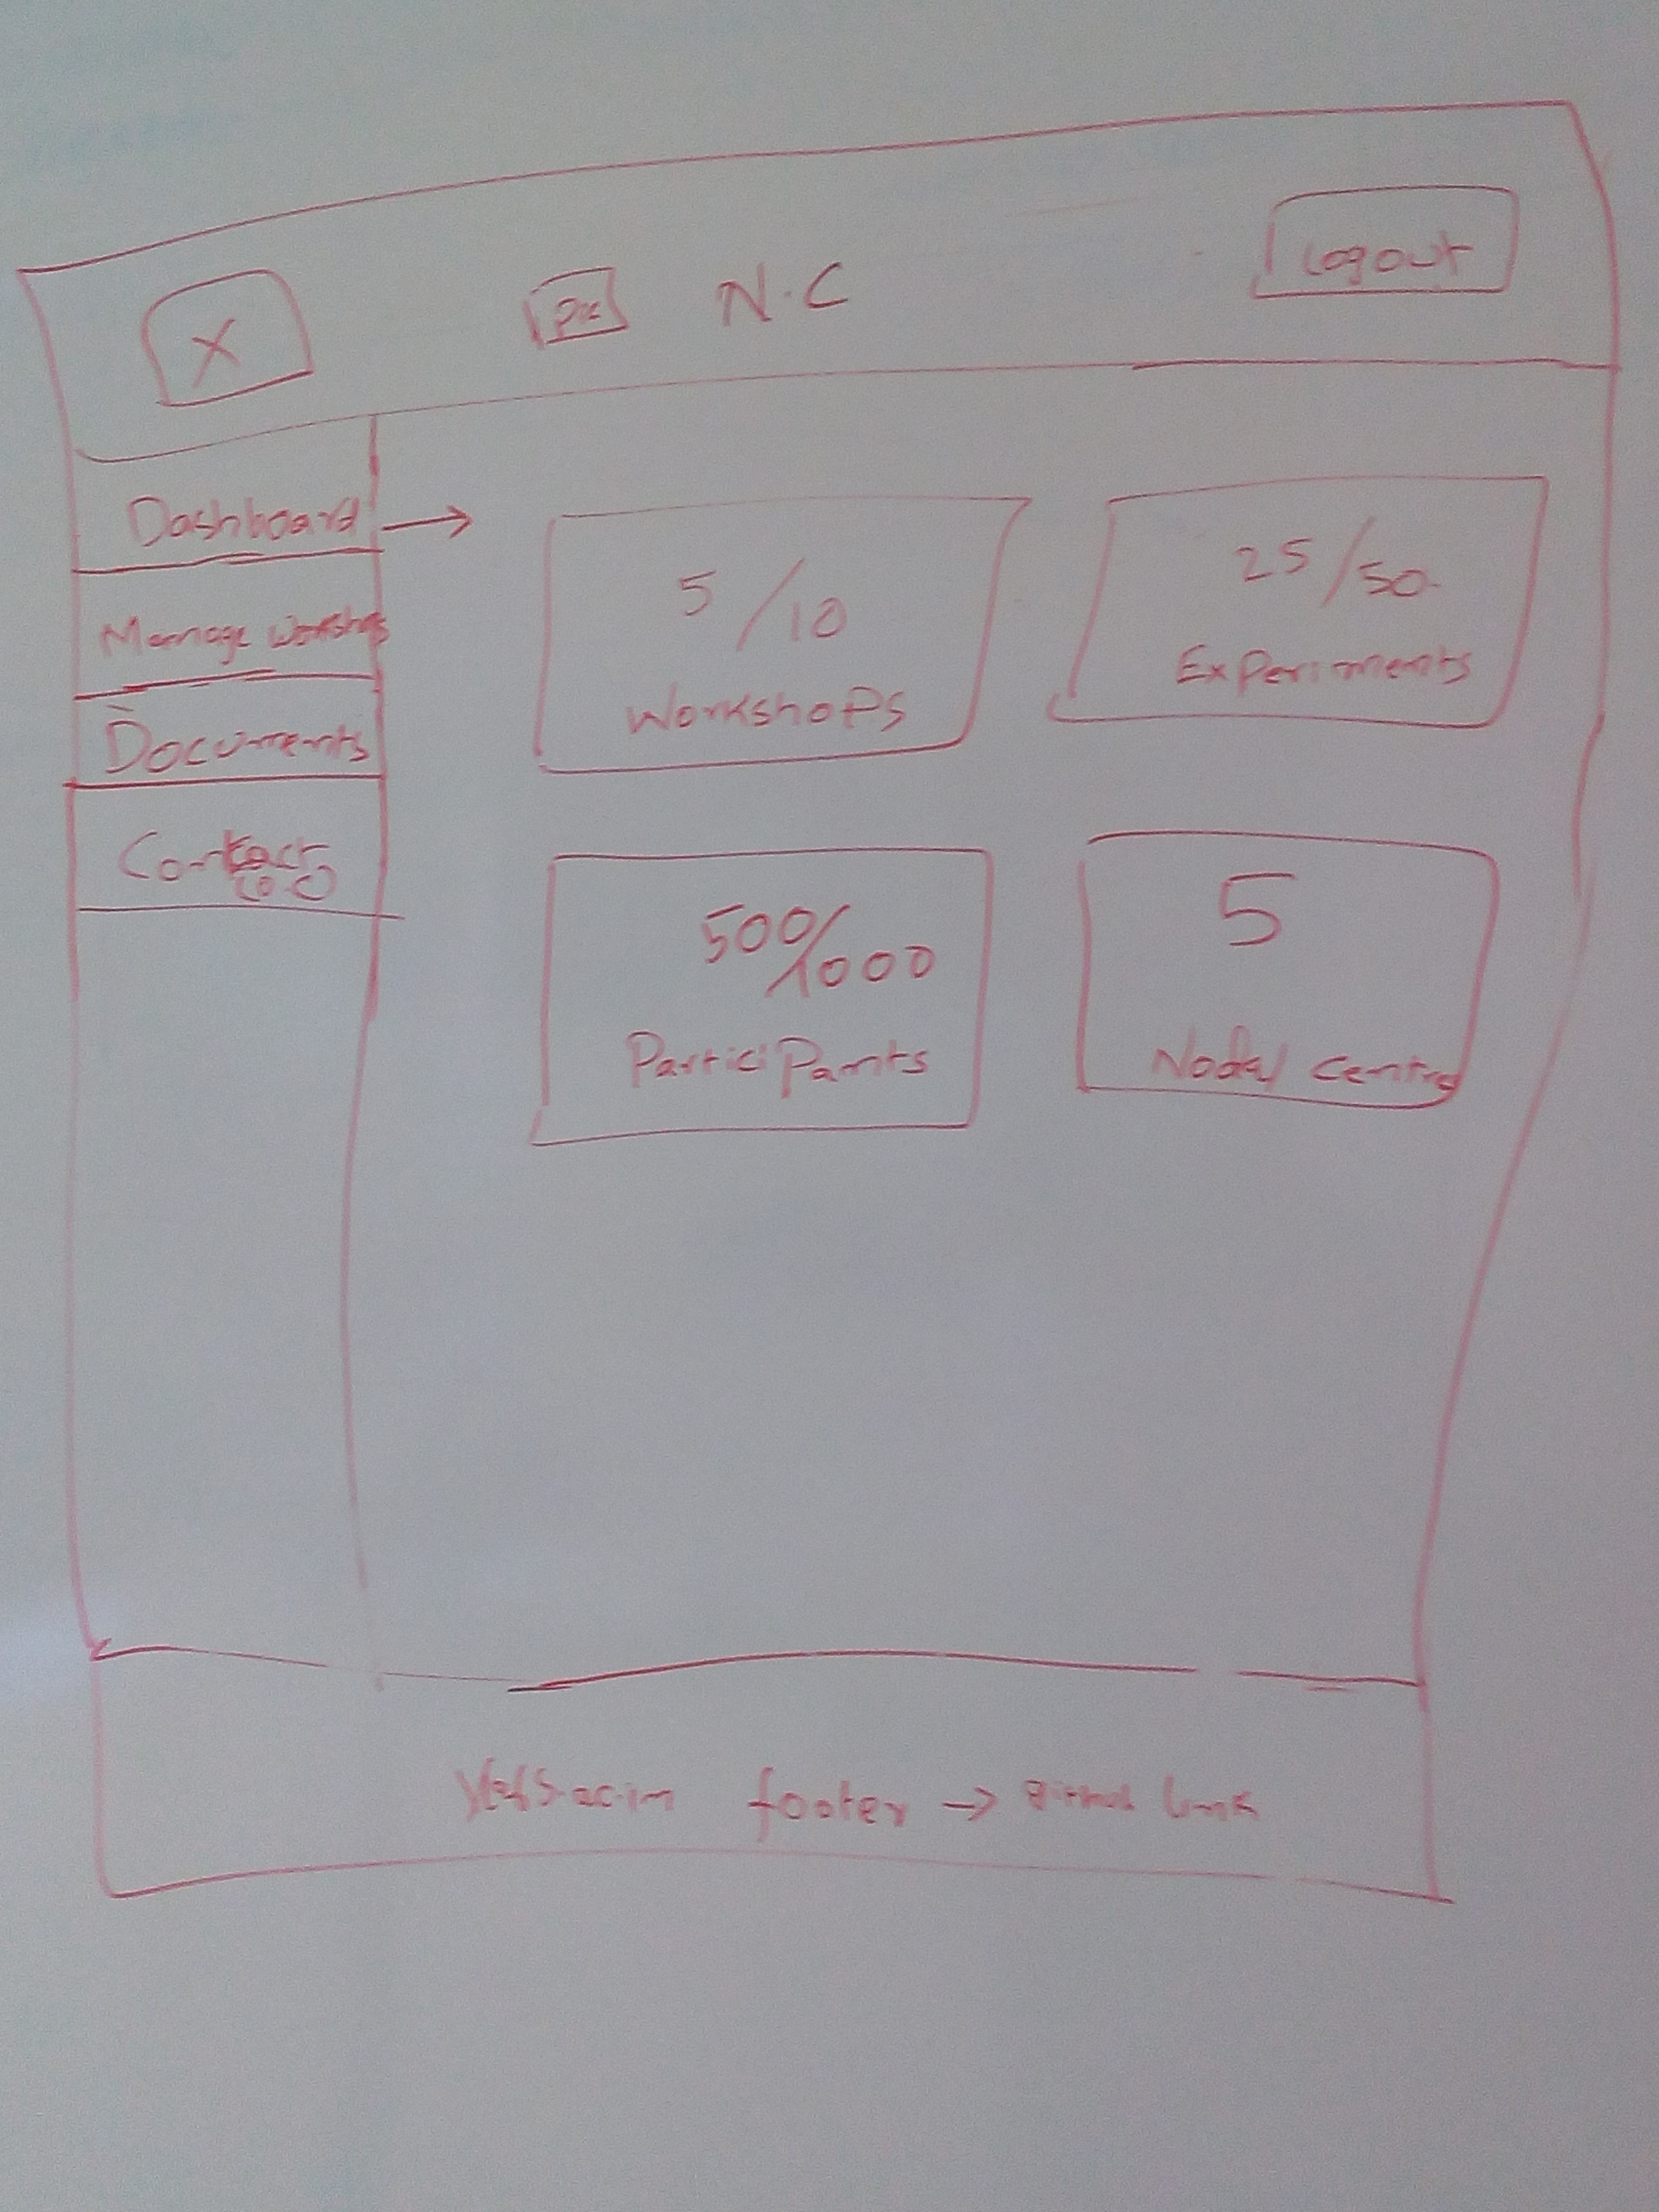 X
Pic
N.C
Logout
Dashboard
Manage Workshops
Documents
Contact
O.C
5/10
Workshops
25/50
Experiments
500/1000
Participants
5
Nodal Centre
footer → Github link